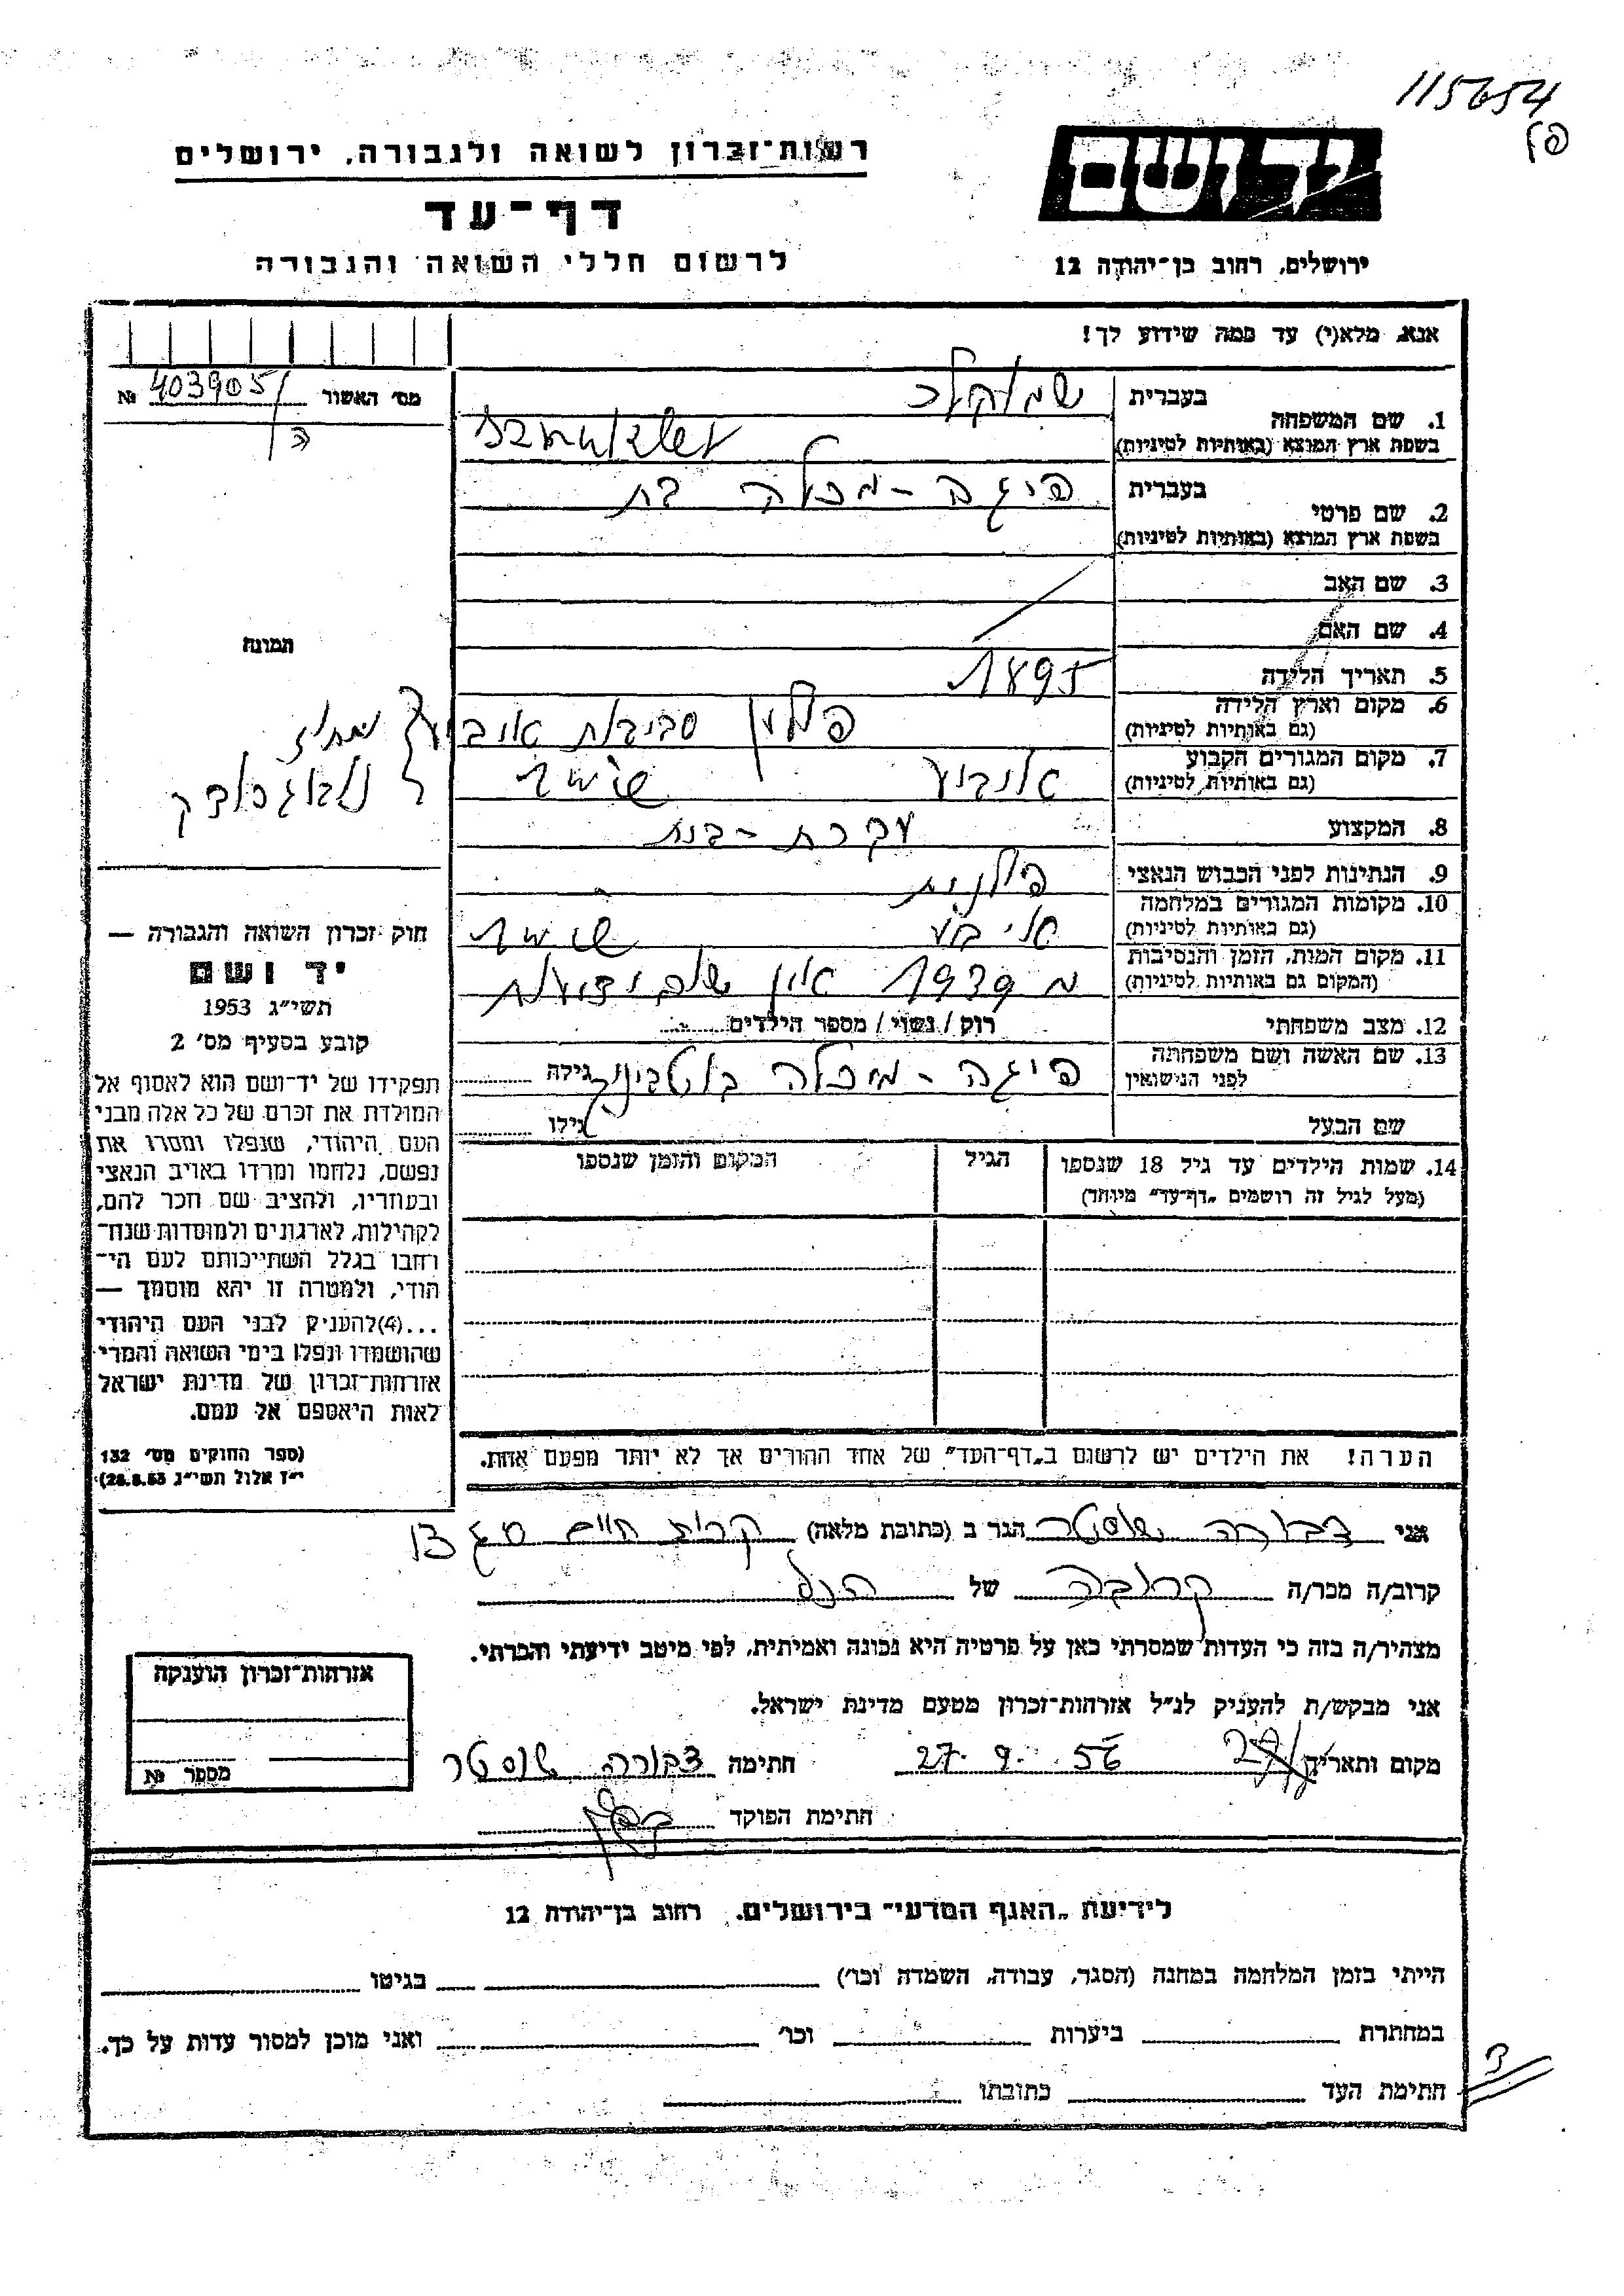 115654
רשות־זכרון לשואה ולגבורה, ירושלים
יד ושם
דף־עד
לרשום חללי השואה והגבורה
ירושלים, רחוב בן־יהודה 12
אנא, מלא(י) עד כמה שידוע לך!
מס' האשור 403905/ №
ה
1. שם המשפחה
בעברית שמוקלר
בשפת ארץ המוצא (באותיות לטיניות) Szmukler
2. שם פרטי
בעברית פיגה - מכלה בת
בשפת ארץ המוצא (באותיות לטיניות)
3. שם האב
4. שם האם
תמונה
5. תאריך הלידה 1895
6. מקום וארץ הלידה
(גם באותיות לטיניות) פולין סביבות
מחוז
7. מקום המגורים הקבוע
(גם באותיות לטיניות)
8. המקצוע עקרת - בית
9. הנתינות לפני הכבוש הנאצי פולנית
10. מקומות המגורים במלחמה
(גם באותיות לטיניות)
11. מקום המות, הזמן והנסיבות
(המקום גם באותיות לטיניות) מ 1939 אין ידיעות
12. מצב משפחתי רוק / נשוי / מספר הילדים
13. שם האשה ושם משפחתה
לפני הנישואין פיגה - מכלה גילה
שם הבעל גילו
חוק זכרון השואה והגבורה —
יד ושם
תשי"ג 1953
קובע בסעיף מס' 2
תפקידו של יד־ושם הוא לאסוף אל
המולדת את זכרם של כל אלה מבני
העם היהודי, שנפלו ומסרו את
נפשם, נלחמו ומרדו באויב הנאצי
ובעוזריו, ולהציב שם וזכר להם,
לקהילות, לארגונים ולמוסדות שנח־
רחבו בגלל השתייכותם לעם הי־
הודי, ולמטרה זו יהא מוסמך —
...(4)להעניק לבני העם היהודי
שהושמדו ונפלו בימי השואה והמרי
אזרחות־זכרון של מדינת ישראל
לאות היאספם אל עמם.
(ספר החוקים מס' 132
י"ז אלול תשי"ג 28.8.53)
14. שמות הילדים עד גיל 18 שנספו
(מעל לגיל זה רושמים „דף־עד" מיוחד)
הגיל
המקום והזמן שנספו
הערה! את הילדים יש לרשום ב„דף־העד" של אחד ההורים אך לא יותר מפעם אחת.
אני דבורה שוסטר הגר ב (כתובת מלאה) קרית חיים 13
קרוב/ה מכר/ה קרובה של הנ"ל
מצהיר/ה בזה כי העדות שמסרתי כאן על פרטיה היא נכונה ואמיתית, לפי מיטב ידיעתי והכרתי.
אני מבקש/ת להעניק לנ"ל אזרחות־זכרון מטעם מדינת ישראל.
מקום ותאריך 27.9.56 חתימה דבורה שוסטר
חתימת הפוקד
אזרחות־זכרון הוענקה
מספר №
לידיעת „האגף המדעי" בירושלים, רחוב בן־יהודה 12
הייתי בזמן המלחמה במחנה (הסגר, עבודה, השמדה וכו') בגיטו
במחתרת ביערות וכו' ואני מוכן למסור עדות על כך.
חתימת העד כתובתו